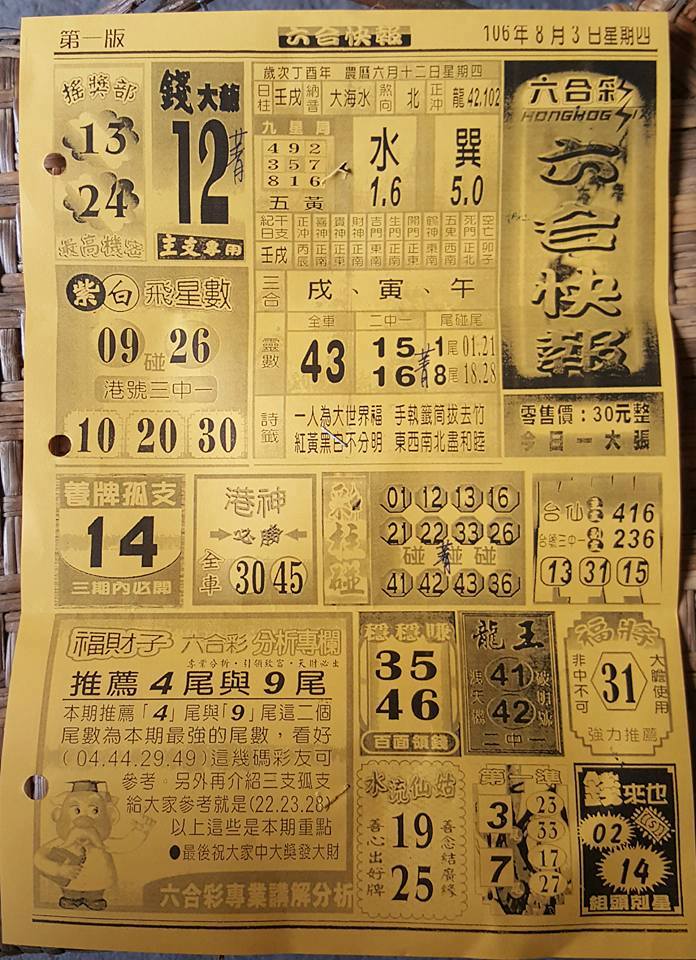 第一版
六合快報
106年8月3日星期四
搖獎部
13
24
最高機密
錢大爺
12
主支專用
歲次丁酉年 農曆六月十二日星期四
日柱 壬戌 納音 大海水 煞向 北 正沖 龍42.102
九星局
4 9 2
3 5 7
8 1 6
五黃
水
1.6
巽
5.0
紀日 干支 正沖 喜神 貴神 財神 吉門 生門 開門 鶴神 五東 死門 空亡
壬戌
三合
戌、寅、午
靈數
全車
43
二中一
15
16
尾碰尾
1尾 01.21
8尾 18.28
詩籤
一人為大世界福 手執籤筒拔去竹
紅黃黑白不分明 東西南北盡和睦
六合彩
HONGKOG SIX
六合快報
零售價：30元整
今日一大張
紫白飛星數
09碰26
港號三中一
10 20 30
養牌孤支
14
三期內必開
港神
必勝
全車
30 45
彩柱碰
01 12 13 16
21 22 33 26
碰 碰 碰
41 42 43 36
台仙 416
台號三中一 236
13 31 15
福財子 六合彩 分析專欄
專業分析·引領致富·天財必出
推薦4尾與9尾
本期推薦「4」尾與「9」尾這二個
尾數為本期最強的尾數，看好
(04.44.29.49)這幾碼彩友可
參考。另外再介紹三支孤支
給大家參考就是(22.23.28)
以上這些是本期重點
●最後祝大家中大獎發大財
六合彩專業講解分析
穩穩賺
35
46
百面領錢
龍王
41
42
二中一
福將
非中不可
31
大膽使用
強力推薦
水流仙姑
善心出好牌
19
25
善念結廣緣
第一準
3
7
23
33
17
27
錢來也
02
14
組頭剋星